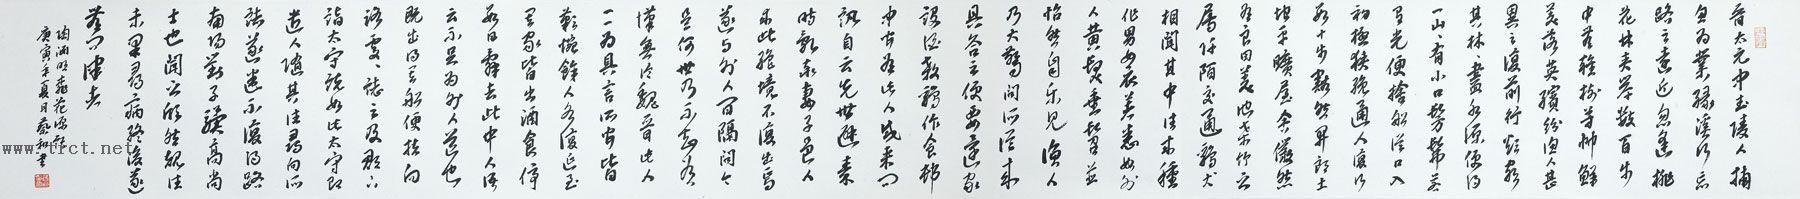 晋太元中武陵人捕
魚为業缘溪行忘
路之遠近忽逢桃
花林夹岸数百步
中无雜树芳艸鲜
美落英缤纷渔人甚
異之復前行欲窮
其林林盡水源便得
一山山有小口髣髴若
有光便捨船从口入
初極狭纔通人復行
数十步豁然开朗土
地平曠屋舍儼然
有良田美池桑竹之
属阡陌交通鸡犬
相闻其中往来種
作男女衣著悉如外
人黄髪垂髫並
怡然自乐见渔人
乃大驚问所从来
具答之便要還家
设酒殺鸡作食邨
中闻有此人咸来问
訊自云先世避秦
時乱率妻子邑人
来此絶境不復出焉
遂与外人间隔问今
是何世乃不知有
漢无论魏晋此人
一一为具言所闻皆
歎惋餘人各復延至
其家皆出酒食停
数日辞去此中人语
云不足为外人道也
既出得其船便扶向
路處處誌之及郡下
詣太守说如此太守即
遣人随其往尋向所
誌遂迷不復得路
南阳劉子驥高尚
士也闻之欣然规往
未果尋病终後遂
无问津者
陶渊明桃花源記
庚寅年夏月 和書
www.trct.net